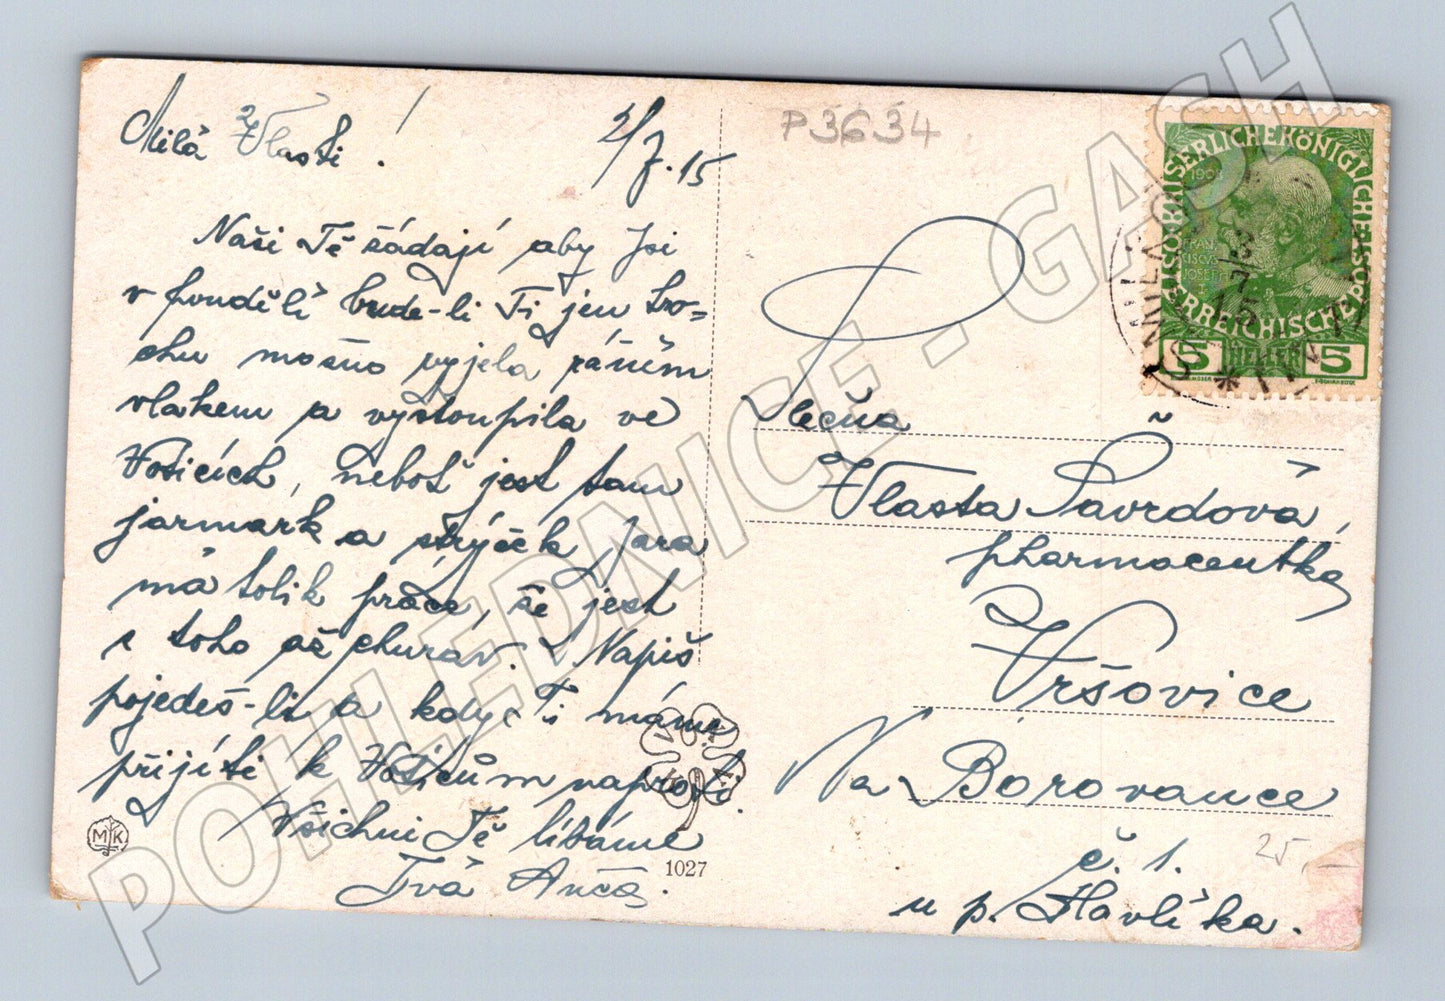 Milá Vlasti!
2/7.15
Naši Tě žádají aby jsi
v pondělí bude-li Ti jen tro-
chu možno vyjela ranním
vlakem a vystoupila ve
Voticích, neboť jest tam
jarmark a strýček Jara
má tolik práce, že jest
z toho až churav. Napiš
pojedeš-li a kdy Ti máme
přijíti k Voticům naproti.
Všichni Tě líbáme
Tvá Anča.
MK
1027
P3634
KAISERLICHEKÖNIGLICHE
ÖSTERREICHISCHE POST
1908
FRAN
CISCVS
JOSEPH
I
5 HELLER 5
2
7
15
Slečna
Vlasta Pavrdová,
pharmaceutka
Vršovice
Na Borovance
č. 1.
u p. Havlíčka.
25,-
POHLEDNICE - GASH